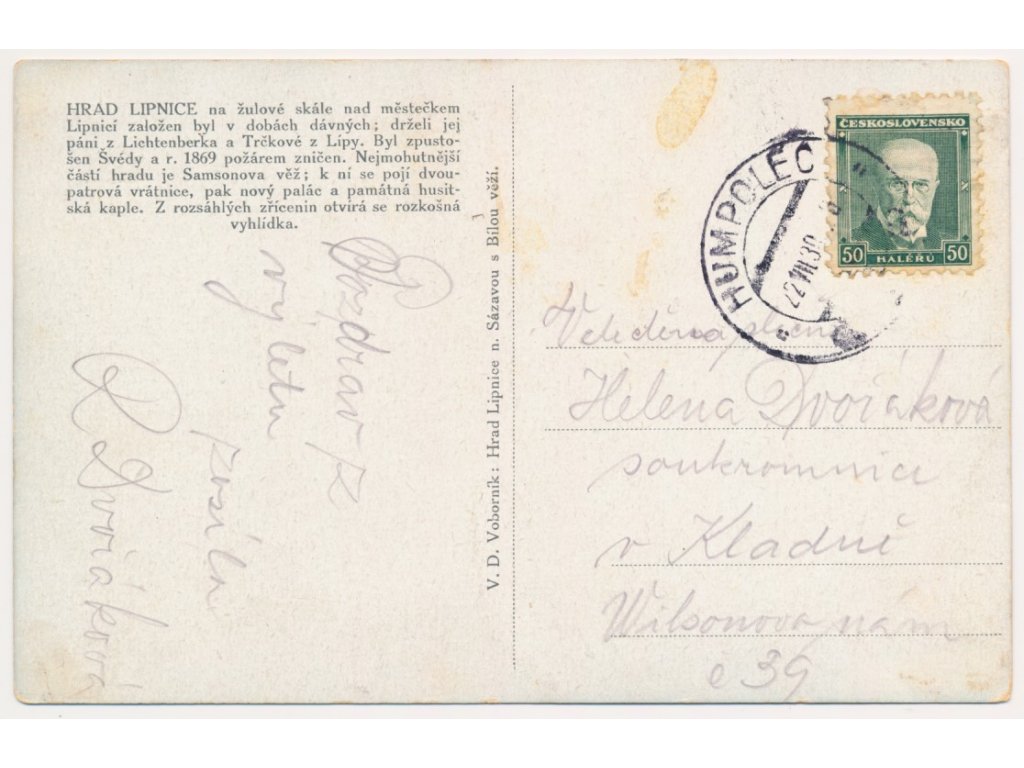 HRAD LIPNICE na žulové skále nad městečkem
Lipnicí založen byl v dobách dávných; drželi jej
páni z Lichtenberka a Trčkové z Lípy. Byl zpusto-
šen Švédy a r. 1869 požárem zničen. Nejmohutnější
částí hradu je Samsonova věž; k ní se pojí dvou-
patrová vrátnice, pak nový palác a památná husit-
ská kaple. Z rozsáhlých zřícenin otvírá se rozkošná
vyhlídka.
Pozdrav z
výletu
zasílá
Dvořáková
V. D. Voborník: Hrad Lipnice n. Sázavou s Bílou věží.
ČESKOSLOVENSKO
50 HALÉŘŮ 50
HUMPOLEC
22 VII 30
slečna
Helena Dvořáková
soukromnice
v Kladně
Wilsonovo nám
č 39